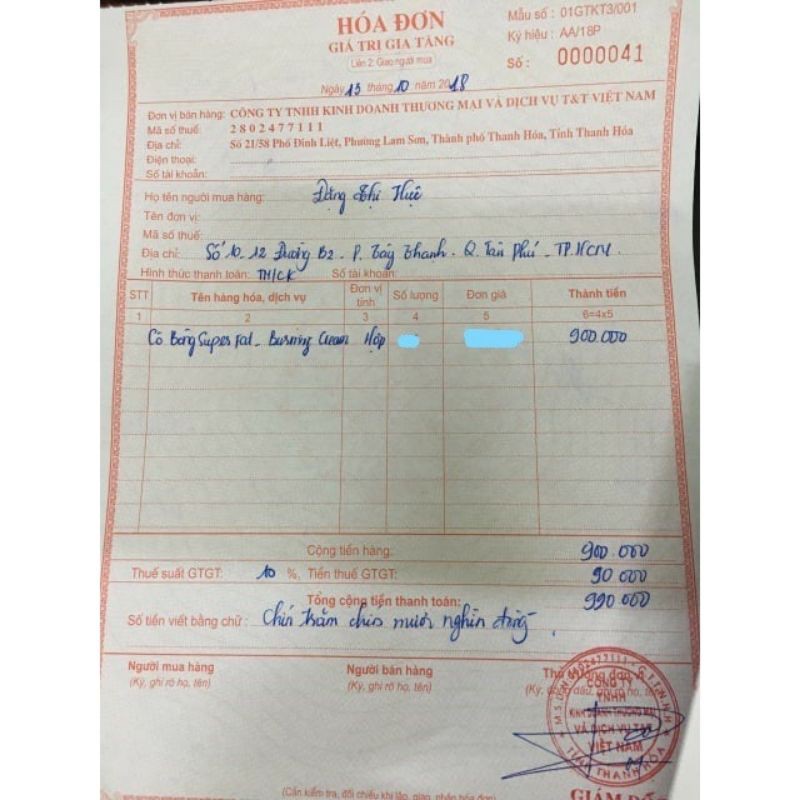 HÓA ĐƠN
GIÁ TRỊ GIA TĂNG
Liên 2: Giao người mua
Mẫu số : 01GTKT3/001
Ký hiệu : AA/18P
Số : 0000041
Ngày 13 tháng 10 năm 2018
Đơn vị bán hàng: CÔNG TY TNHH KINH DOANH THƯƠNG MẠI VÀ DỊCH VỤ T&T VIỆT NAM
Mã số thuế: 2802477111
Địa chỉ: Số 21/58 Phố Đinh Liệt, Phường Lam Sơn, Thành phố Thanh Hóa, Tỉnh Thanh Hóa
Điện thoại:
Số tài khoản:
Họ tên người mua hàng: Đặng Thị
Tên đơn vị:
Mã số thuế:
Địa chỉ: Số 10-12 Đường B2 - P. Tây Thạnh - Q. Tân Phú - TP.HCM.
Hình thức thanh toán: TM/CK Số tài khoản:
STT Tên hàng hóa, dịch vụ Đơn vị tính Số lượng Đơn giá Thành tiền
1 2 3 4 5 6=4x5
Cô Bông Super Fat - Burning Cream Hộp 900.000
Cộng tiền hàng: 900.000
Thuế suất GTGT: 10 %, Tiền thuế GTGT: 90 000
Tổng cộng tiền thanh toán: 990000
Số tiền viết bằng chữ : Chín trăm chín mươi nghìn đồng
Người mua hàng Người bán hàng
(Ký, ghi rõ họ, tên) (Ký, ghi rõ họ, tên)
CÔNG TY
TNHH
KINH DOANH THƯƠNG MẠI
VÀ DỊCH VỤ T&T
VIỆT NAM
(Cần kiểm tra, đối chiếu khi lập, giao, nhận hóa đơn)